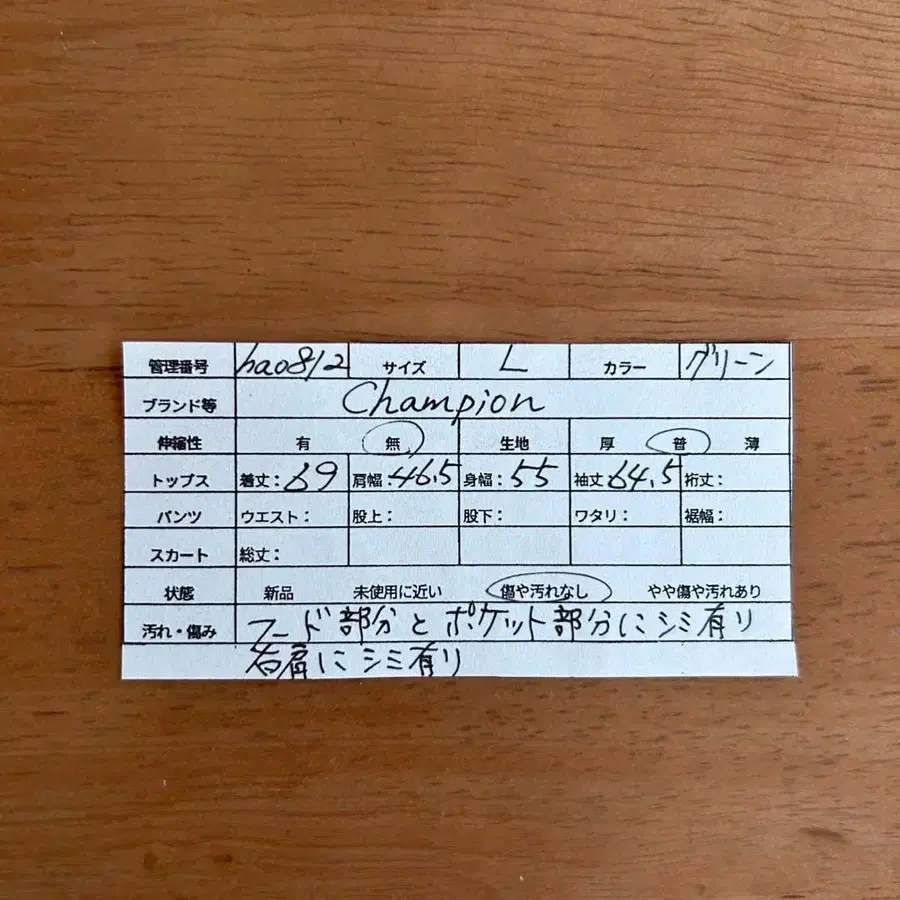 管理番号 hao812 サイズ L カラー グリーン
ブランド等 Champion
伸縮性 有 無 生地 厚 普 薄
トップス 着丈:69 肩幅:46.5 身幅:55 袖丈:64.5 裄丈:
パンツ ウエスト: 股上: 股下: ワタリ: 裾幅:
スカート 総丈:
状態 新品 未使用に近い 傷や汚れなし やや傷や汚れあり
汚れ・傷み フード部分とポケット部分にシミ有り
右肩にシミ有り